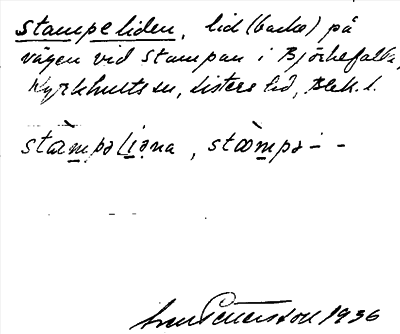 Stampeliden, lid (backe) på
vägen vid Stampan i Björkefalla,
Kyrkhults sn, Listers hd, Blek. l.
stàmpəli̯əna, stàmpə- -
Sven Pettersson 1936